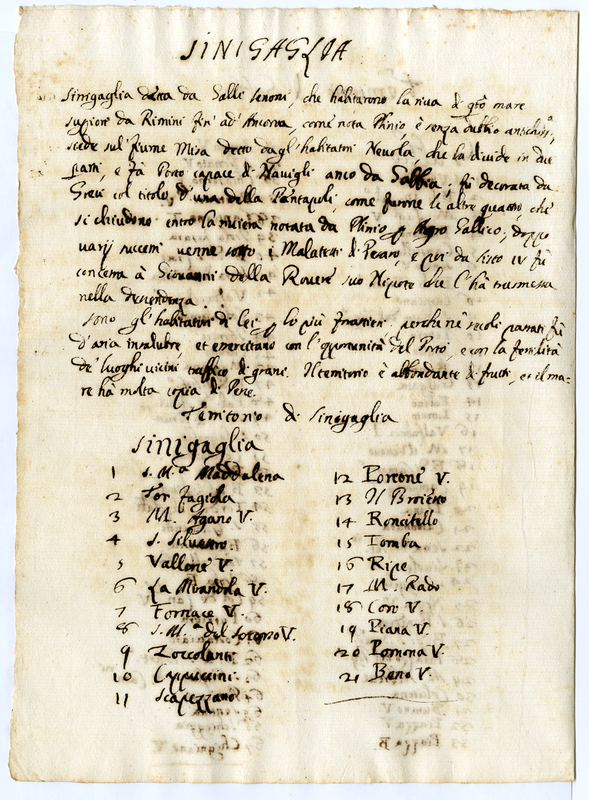 SINIGAGLIA
Sinigaglia detta da Galli Senoni, che habitarono la riva di qto mare
supiore da Rimini fin' ad' Ancona, come nota Plinio, è senza dubbio antichiss.a,
siede sul fiume Misa detto dagl' habitatori Nevola, che la divide in due
parti, e fà Porto capace di Navigli anco da Gabbia; fù decorata da
Greci col titolo, d'una della Pantapoli, come furono le altre quattro, che
si chiudono entro la riviera notata da Plinio p Agro Gallico, doppo
varij successi venne sotto i Malatesti di Pesaro, e poi da Sisto IV fù
concessa à Giovanni della Rovere suo Nipote che l'hà trasmessa
nella descendenza.
Sono gl' habitatori di lei p lo più forastieri, perche ne secoli passati fù
d'aria insalubre, et essercitano con l'opportunità del Porto, e con la fertilità
de' luoghi vicini traffico di grani. Il territorio è abbondante di frutti, et il ma-
re hà molta copia di Pesce.
Territorio di Sinigaglia
Sinigaglia
1 S. M.a Maddalena
2 Tor fagiola
3 M. Agano V.
4 S. Silvestro
5 Vallone V.
6 La Mirandola V.
7 Fornace V.
8 S. M.a del Soccorso V.
9 Zoccolanti
10 Cappuccini
11 Scapezzano
12 Porcone V.
13 Il Brojetto
14 Roncitello
15 Tomba
16 Ripe
17 M. Rado
18 Coro V.
19 Piana V.
20 Pomona V.
21 Beno V.